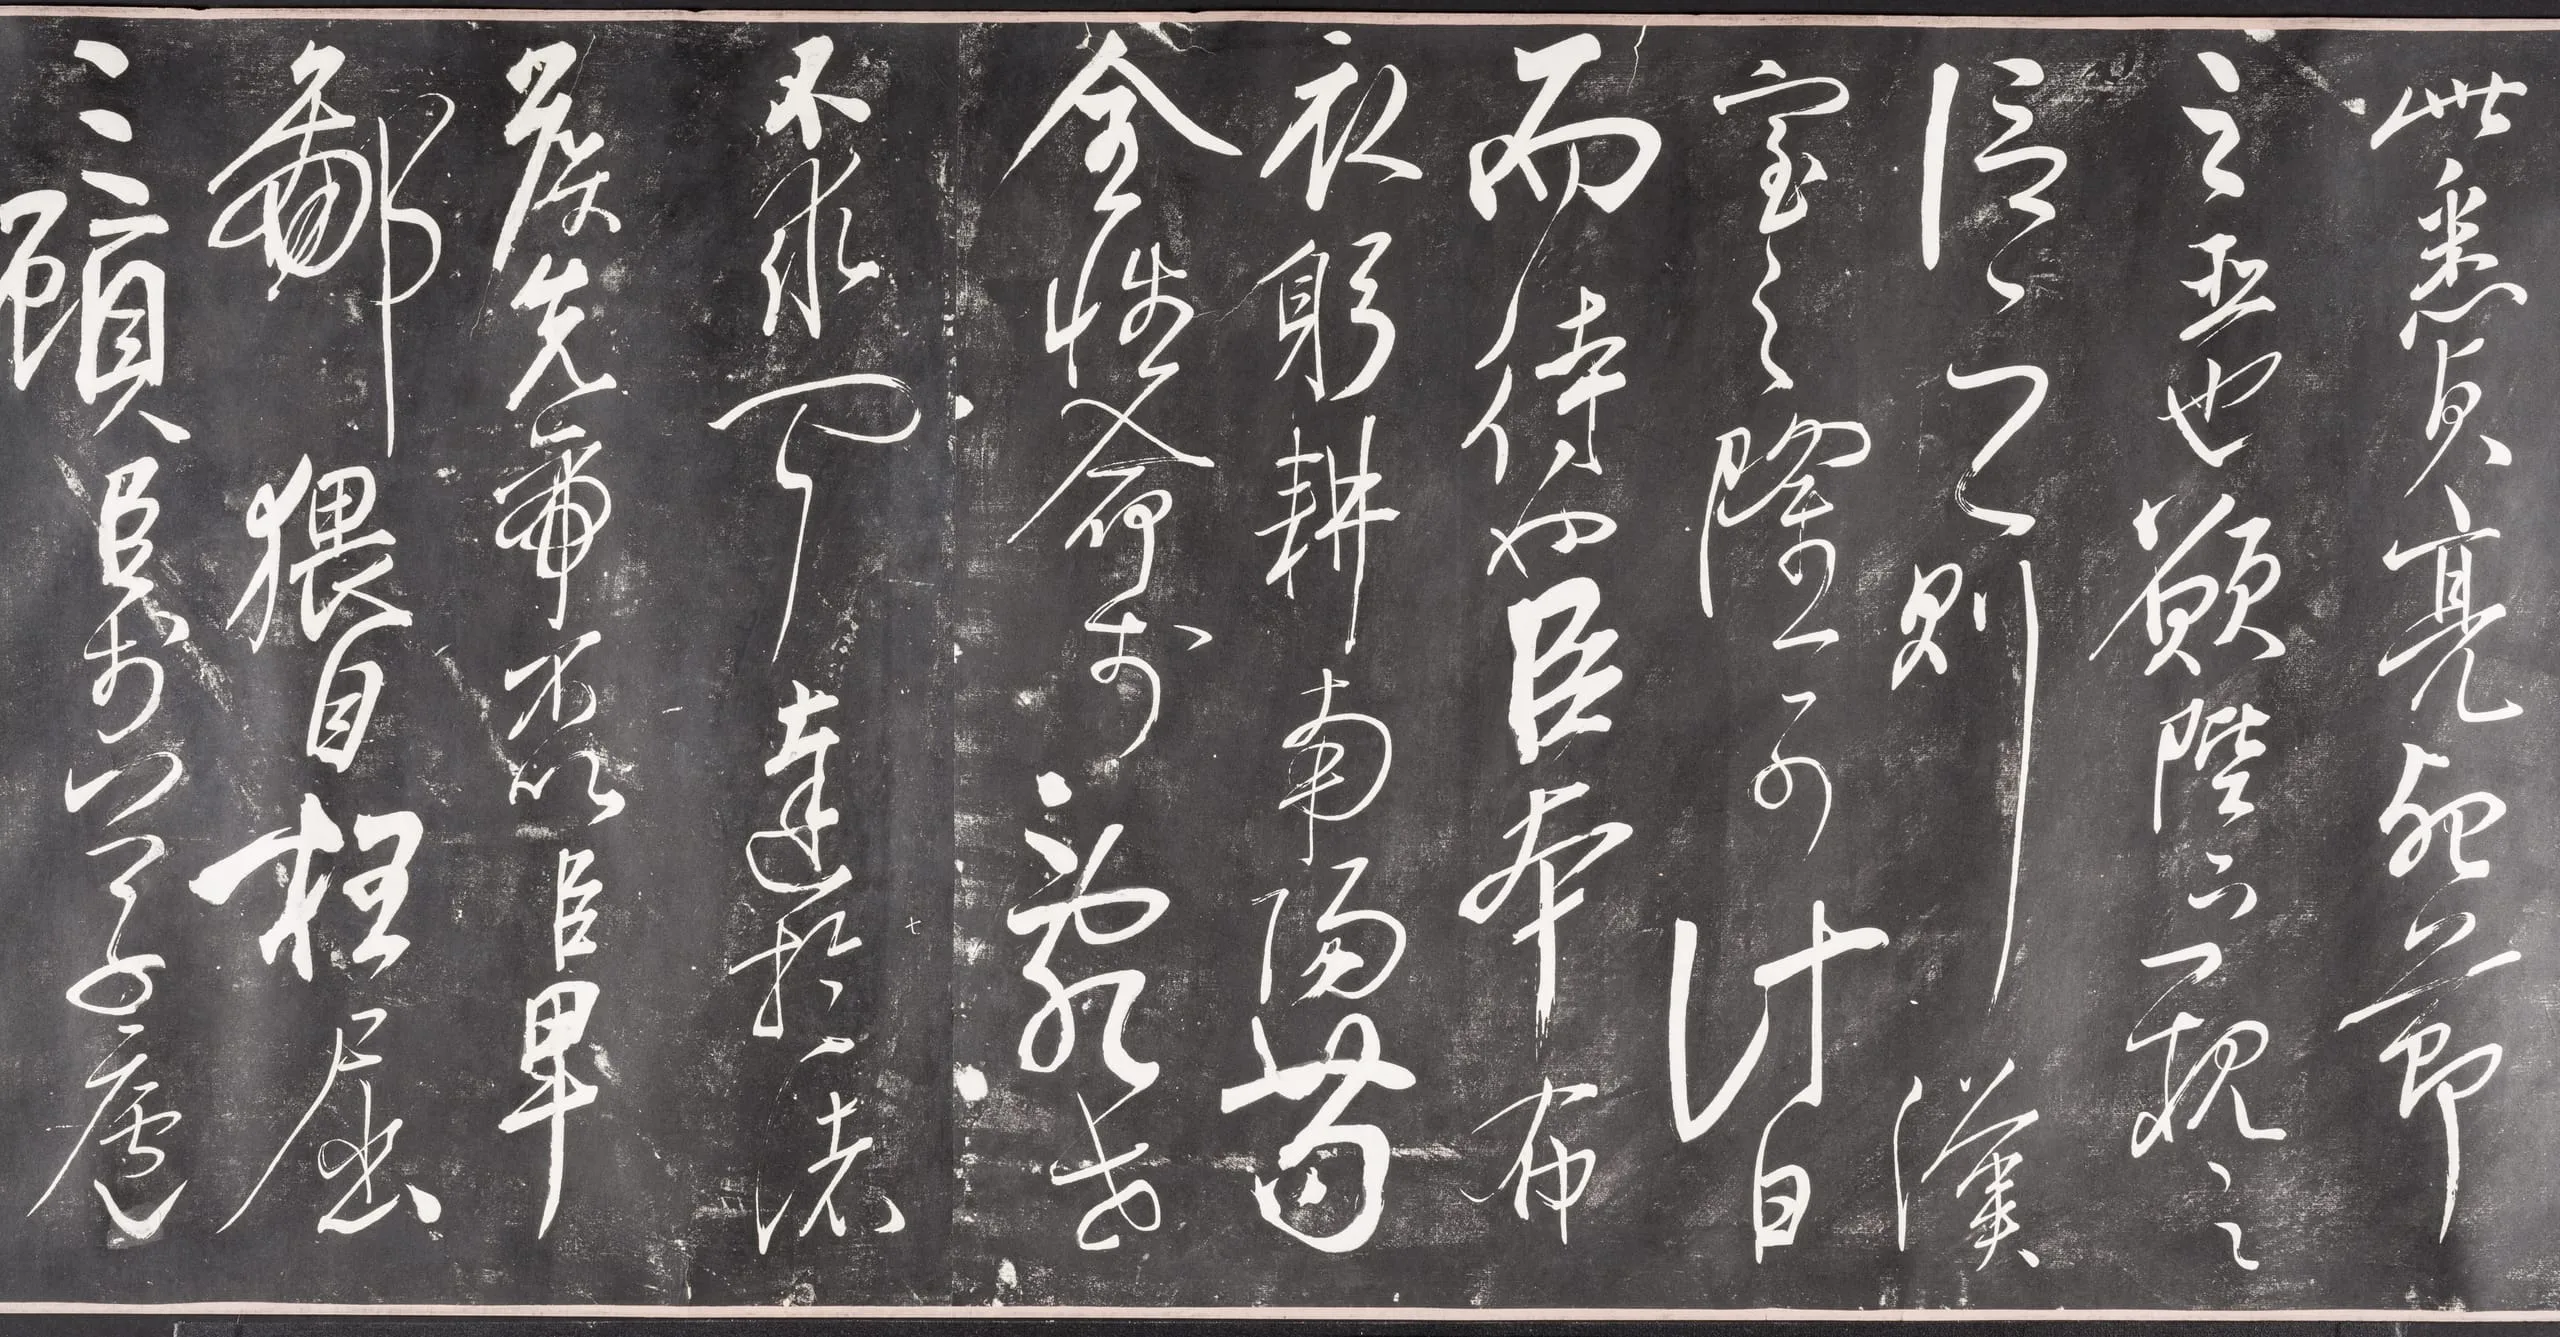 此悉貞亮死節
之臣也願陛下親之
信之則漢
室之隆可計日
而待也臣本布
衣躬耕南陽苟
全性命於亂世
不求聞達於諸
侯先帝不以臣卑
鄙猥自枉屈
三顧臣於草廬